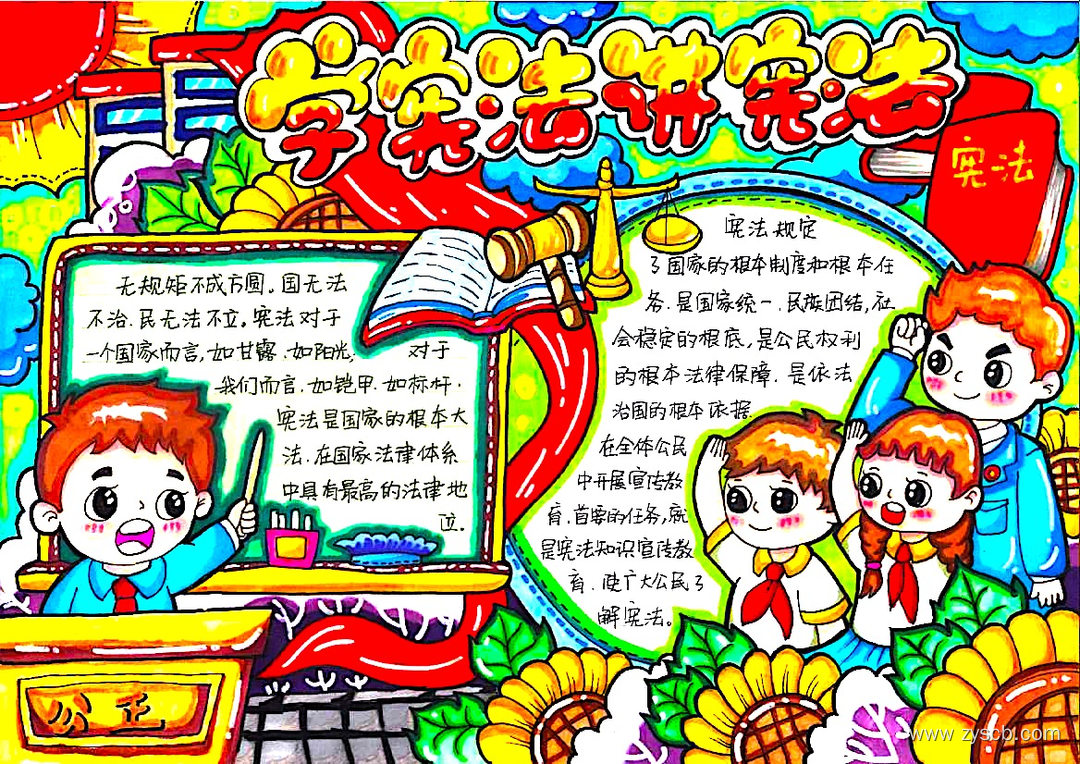 学宪法讲宪法
宪法
无规矩不成方圆。国无法
不治.民无法不立。宪法对于
一个国家而言,如甘露.如阳光;
对于
我们而言.如铠甲.如标杆.
宪法是国家的根本大
法.在国家法律体系
中具有最高的法律地
位。
宪法规定
了国家的根本制度和根本任
务.是国家统一.民族团结,社
会稳定的根底,是公民权利
的根本法律保障.是依法
治国的根本依据
在全体公民
中开展宣传教
育.首要的任务,就
是宪法知识宣传教
育.使广大公民了
解宪法。
公正
www.zyscb.com